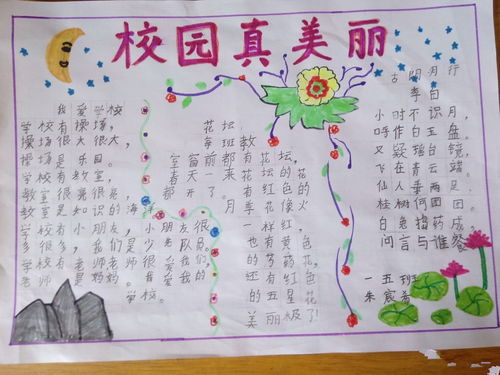 校园真美丽
我爱学校
学校有操场，
操场很大很大，
操场是乐园。
学校有教室，
教室很亮很亮，
教室是知识的海洋。
学校有小朋友，小朋友很
多很多，我们是少先队员。
学校有老师，老师很爱我们，
老师是妈妈。我爱我的
学校。
花坛
每班教
室留前都有花坛，
春天一来花坛的花
都开了。有红色的
月季花像火
一样红，
也有黄色
的芍药花，
还有红色
的五星花
美丽极了！
古朗月行
李白
小时不识月，
呼作白玉盘。
又疑瑶台镜，
飞在青云端。
仙人垂两足，
桂树何团团。
白兔捣药成，
问言与谁餐
一五班
朱宸希